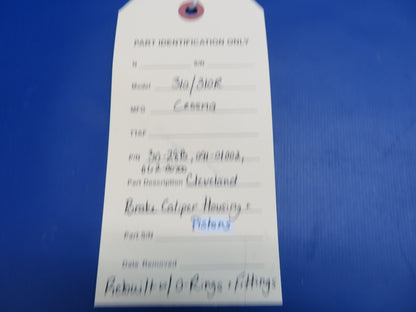 PART IDENTIFICATION ONLY
N S/N
Model 310/310R
MFG Cessna
TTAF
P/N 30-28B, 091-01002,
Part Description Cleveland
Brake Caliper Housing &
Pistons
Part S/N
Date Removed
Rebuilt w/ O Rings & Fittings